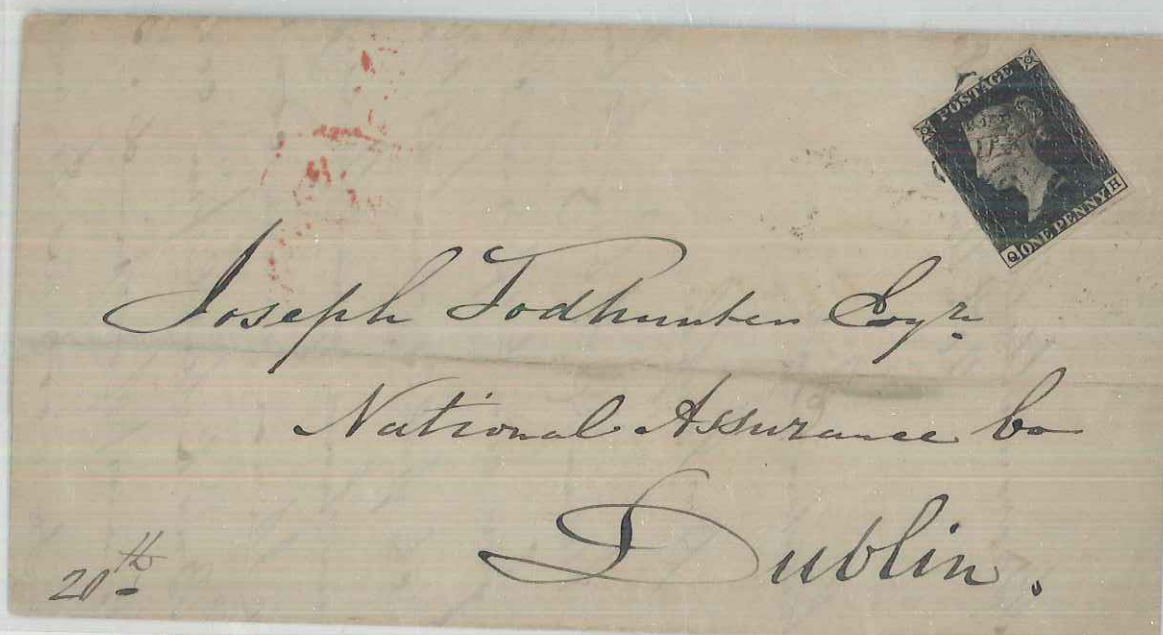 POSTAGE
Q ONE PENNY H
Joseph Todhunter Esqr.
National Assurance Co
Dublin.
20th